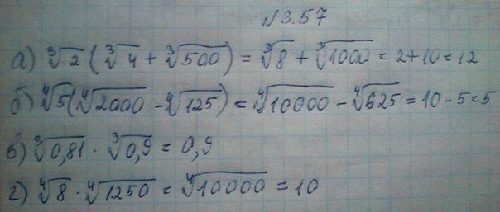 №3.57
а) ∛2 (∛4 + ∛500) = ∛8 + ∛1000 = 2+10=12
б) ∜5(∜2000 - ∜125) = ∜10000 - ∜625 = 10-5=5
в) ∛0,81 · ∛0,9 = 0,9
г) ∜8 · ∜1250 = ∜10000 = 10